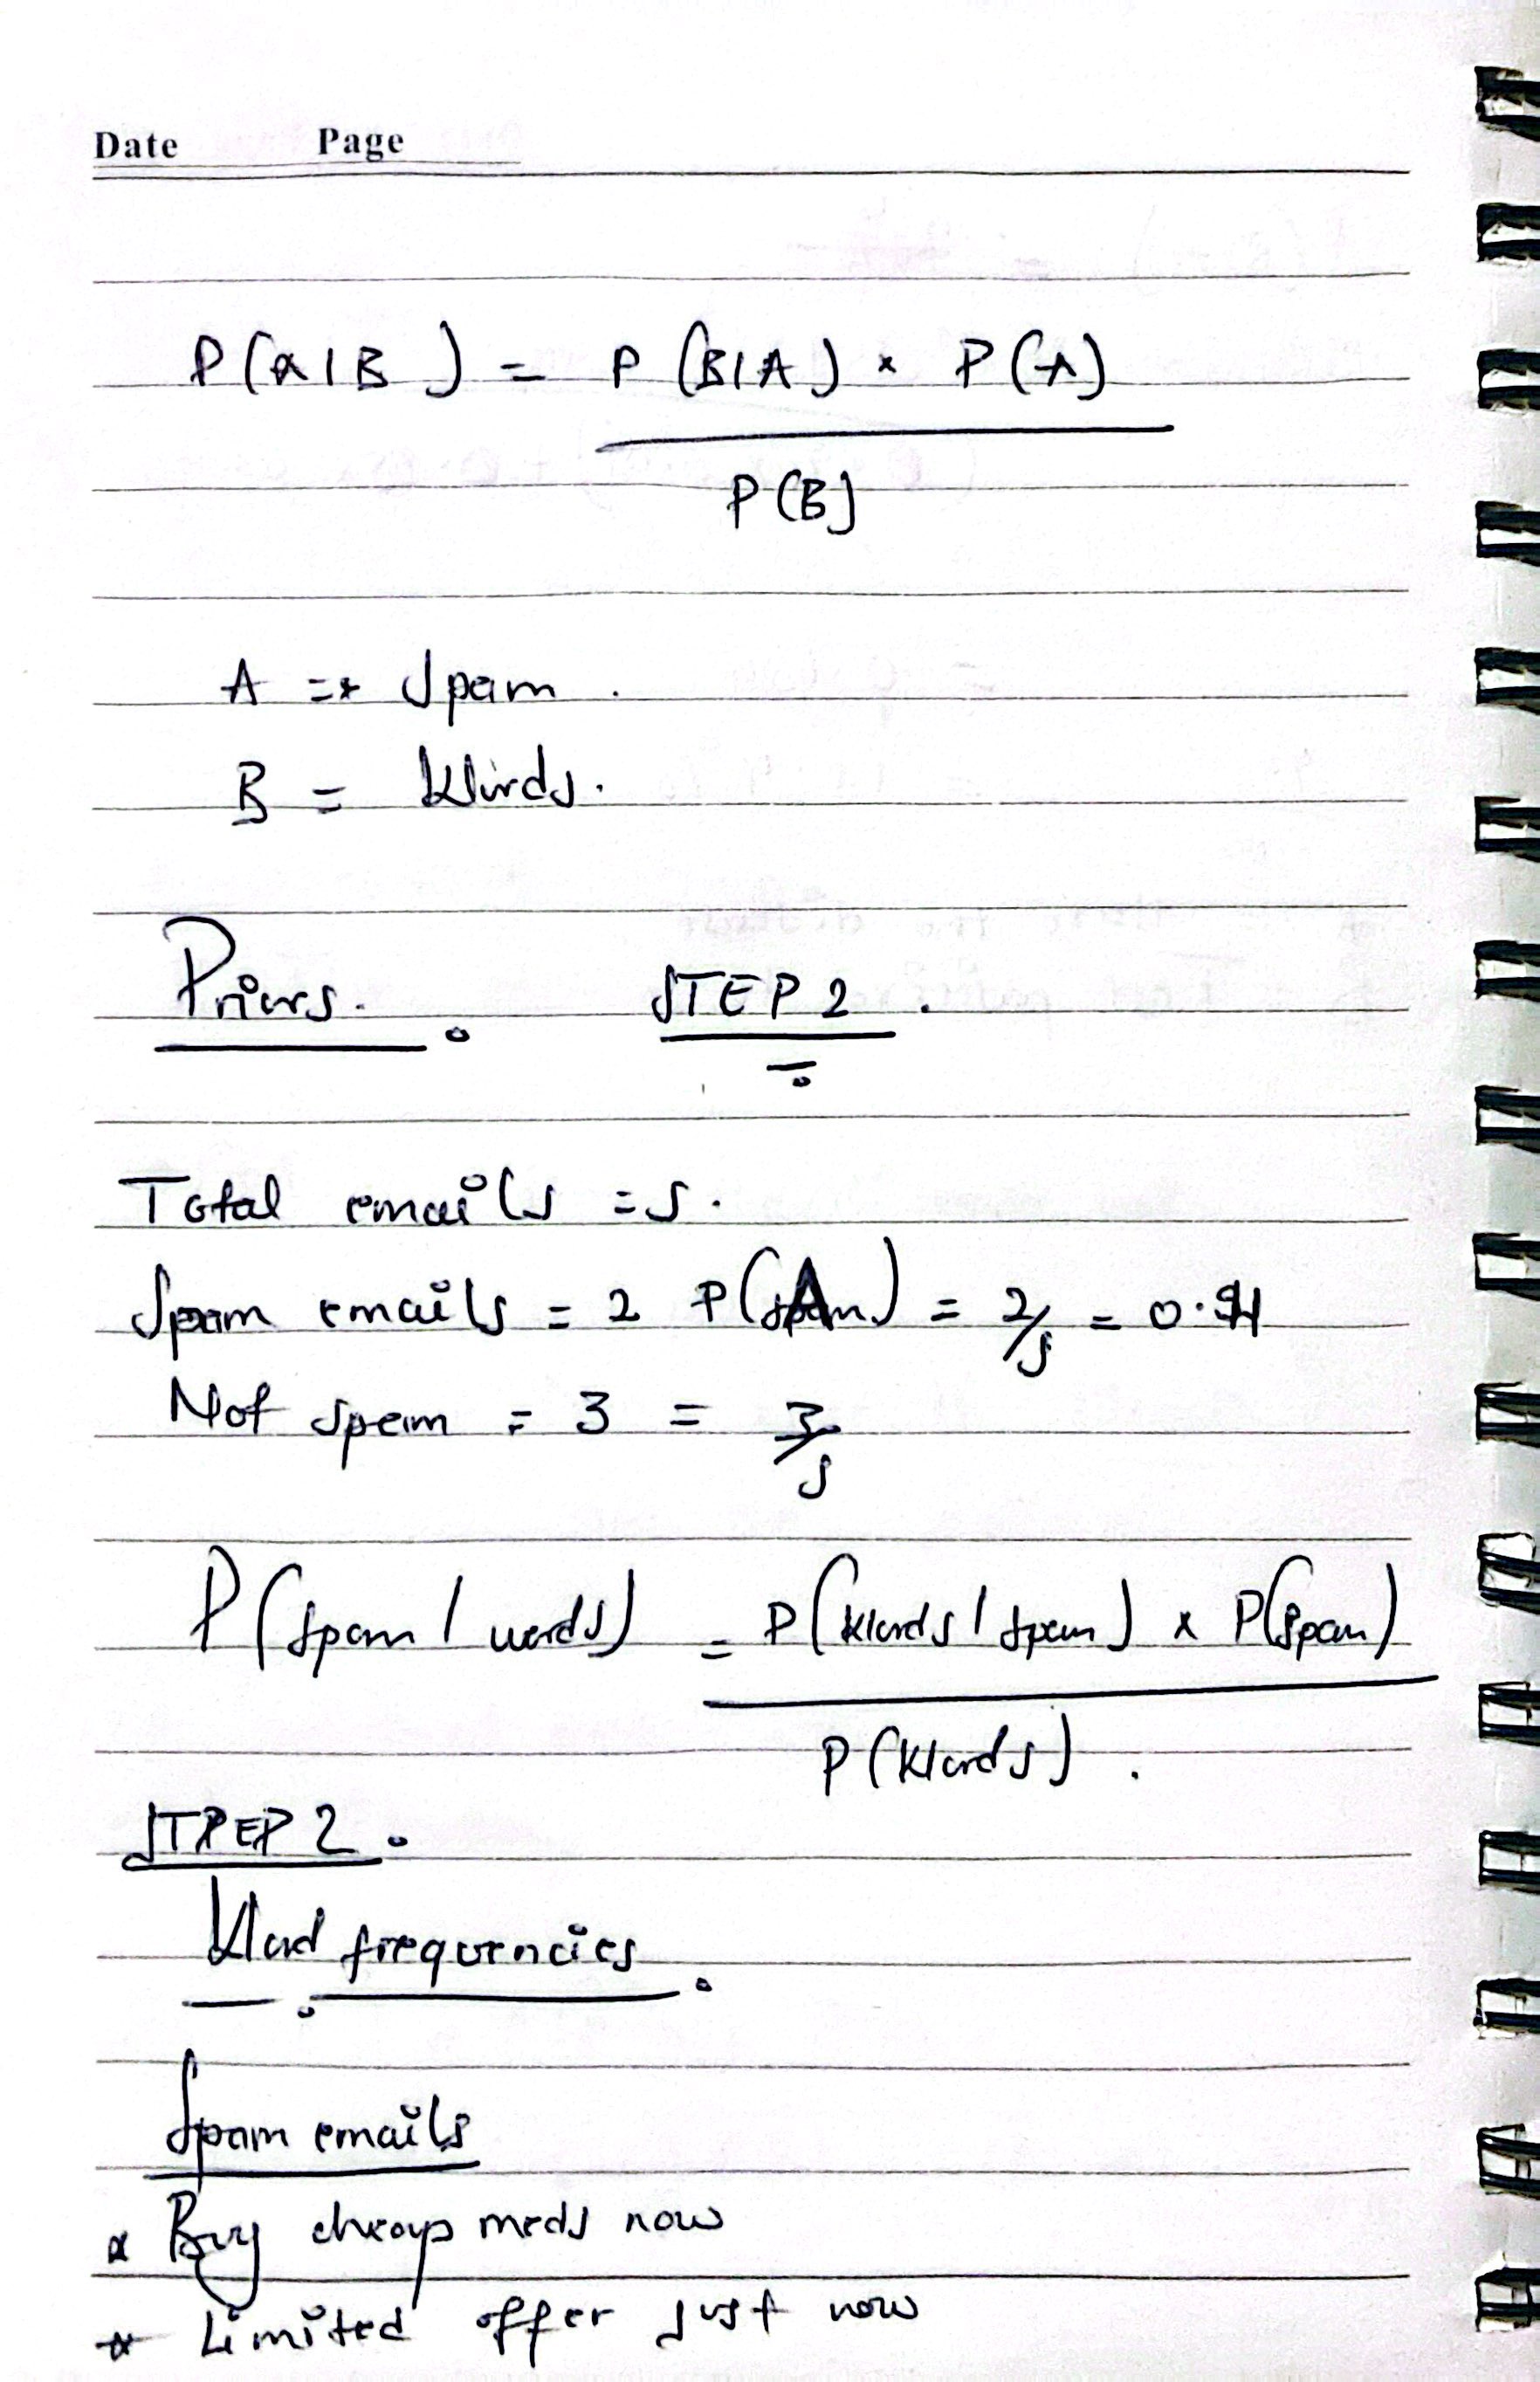 Date Page
P(A|B) = P(B|A) × P(A)
P(B)
A => Spam.
B = Words.
Priors. STEP 2.
Total emails = 5.
Spam emails = 2 P(A) = 2/5 = 0.4
Not spam = 3 = 3/5
P(spam | words) = P(Words | spam) × P(Spam)
P(Words).
STEP 2.
Word frequencies.
Spam emails
* Buy cheap meds now
* Limited offer just now